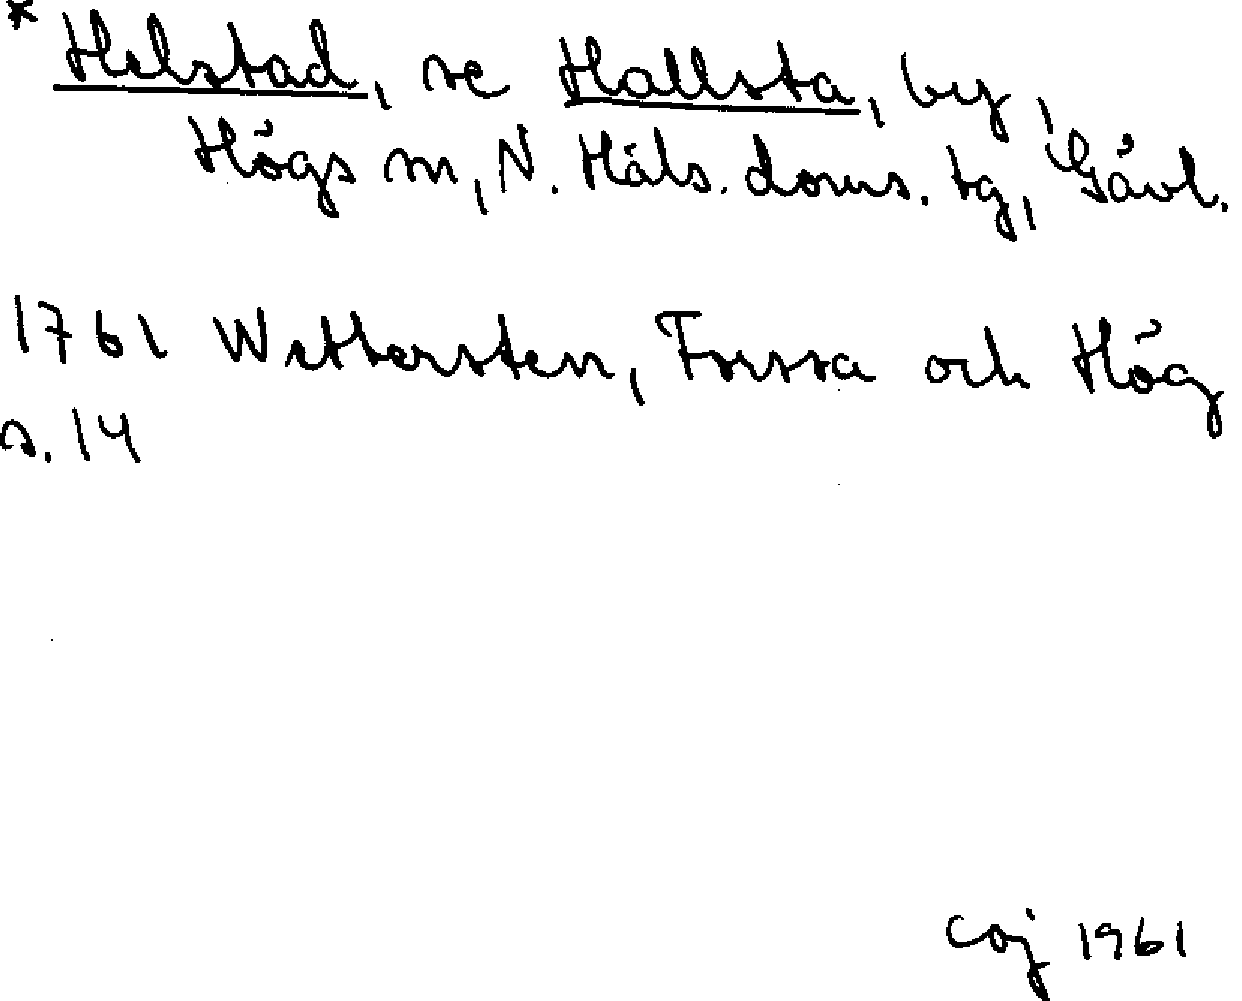 * Helstad, se Hallsta, by,
Högs sn, N. Häls. doms. tg, Gävl.
1761 Wettersten, Forssa och Hög
s. 14
coj 1961